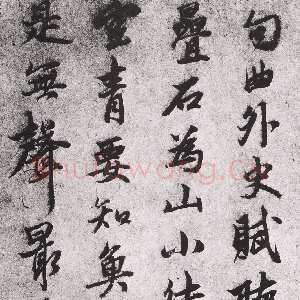 句曲外史賦
疊石為山小
空青要知
是無聲最